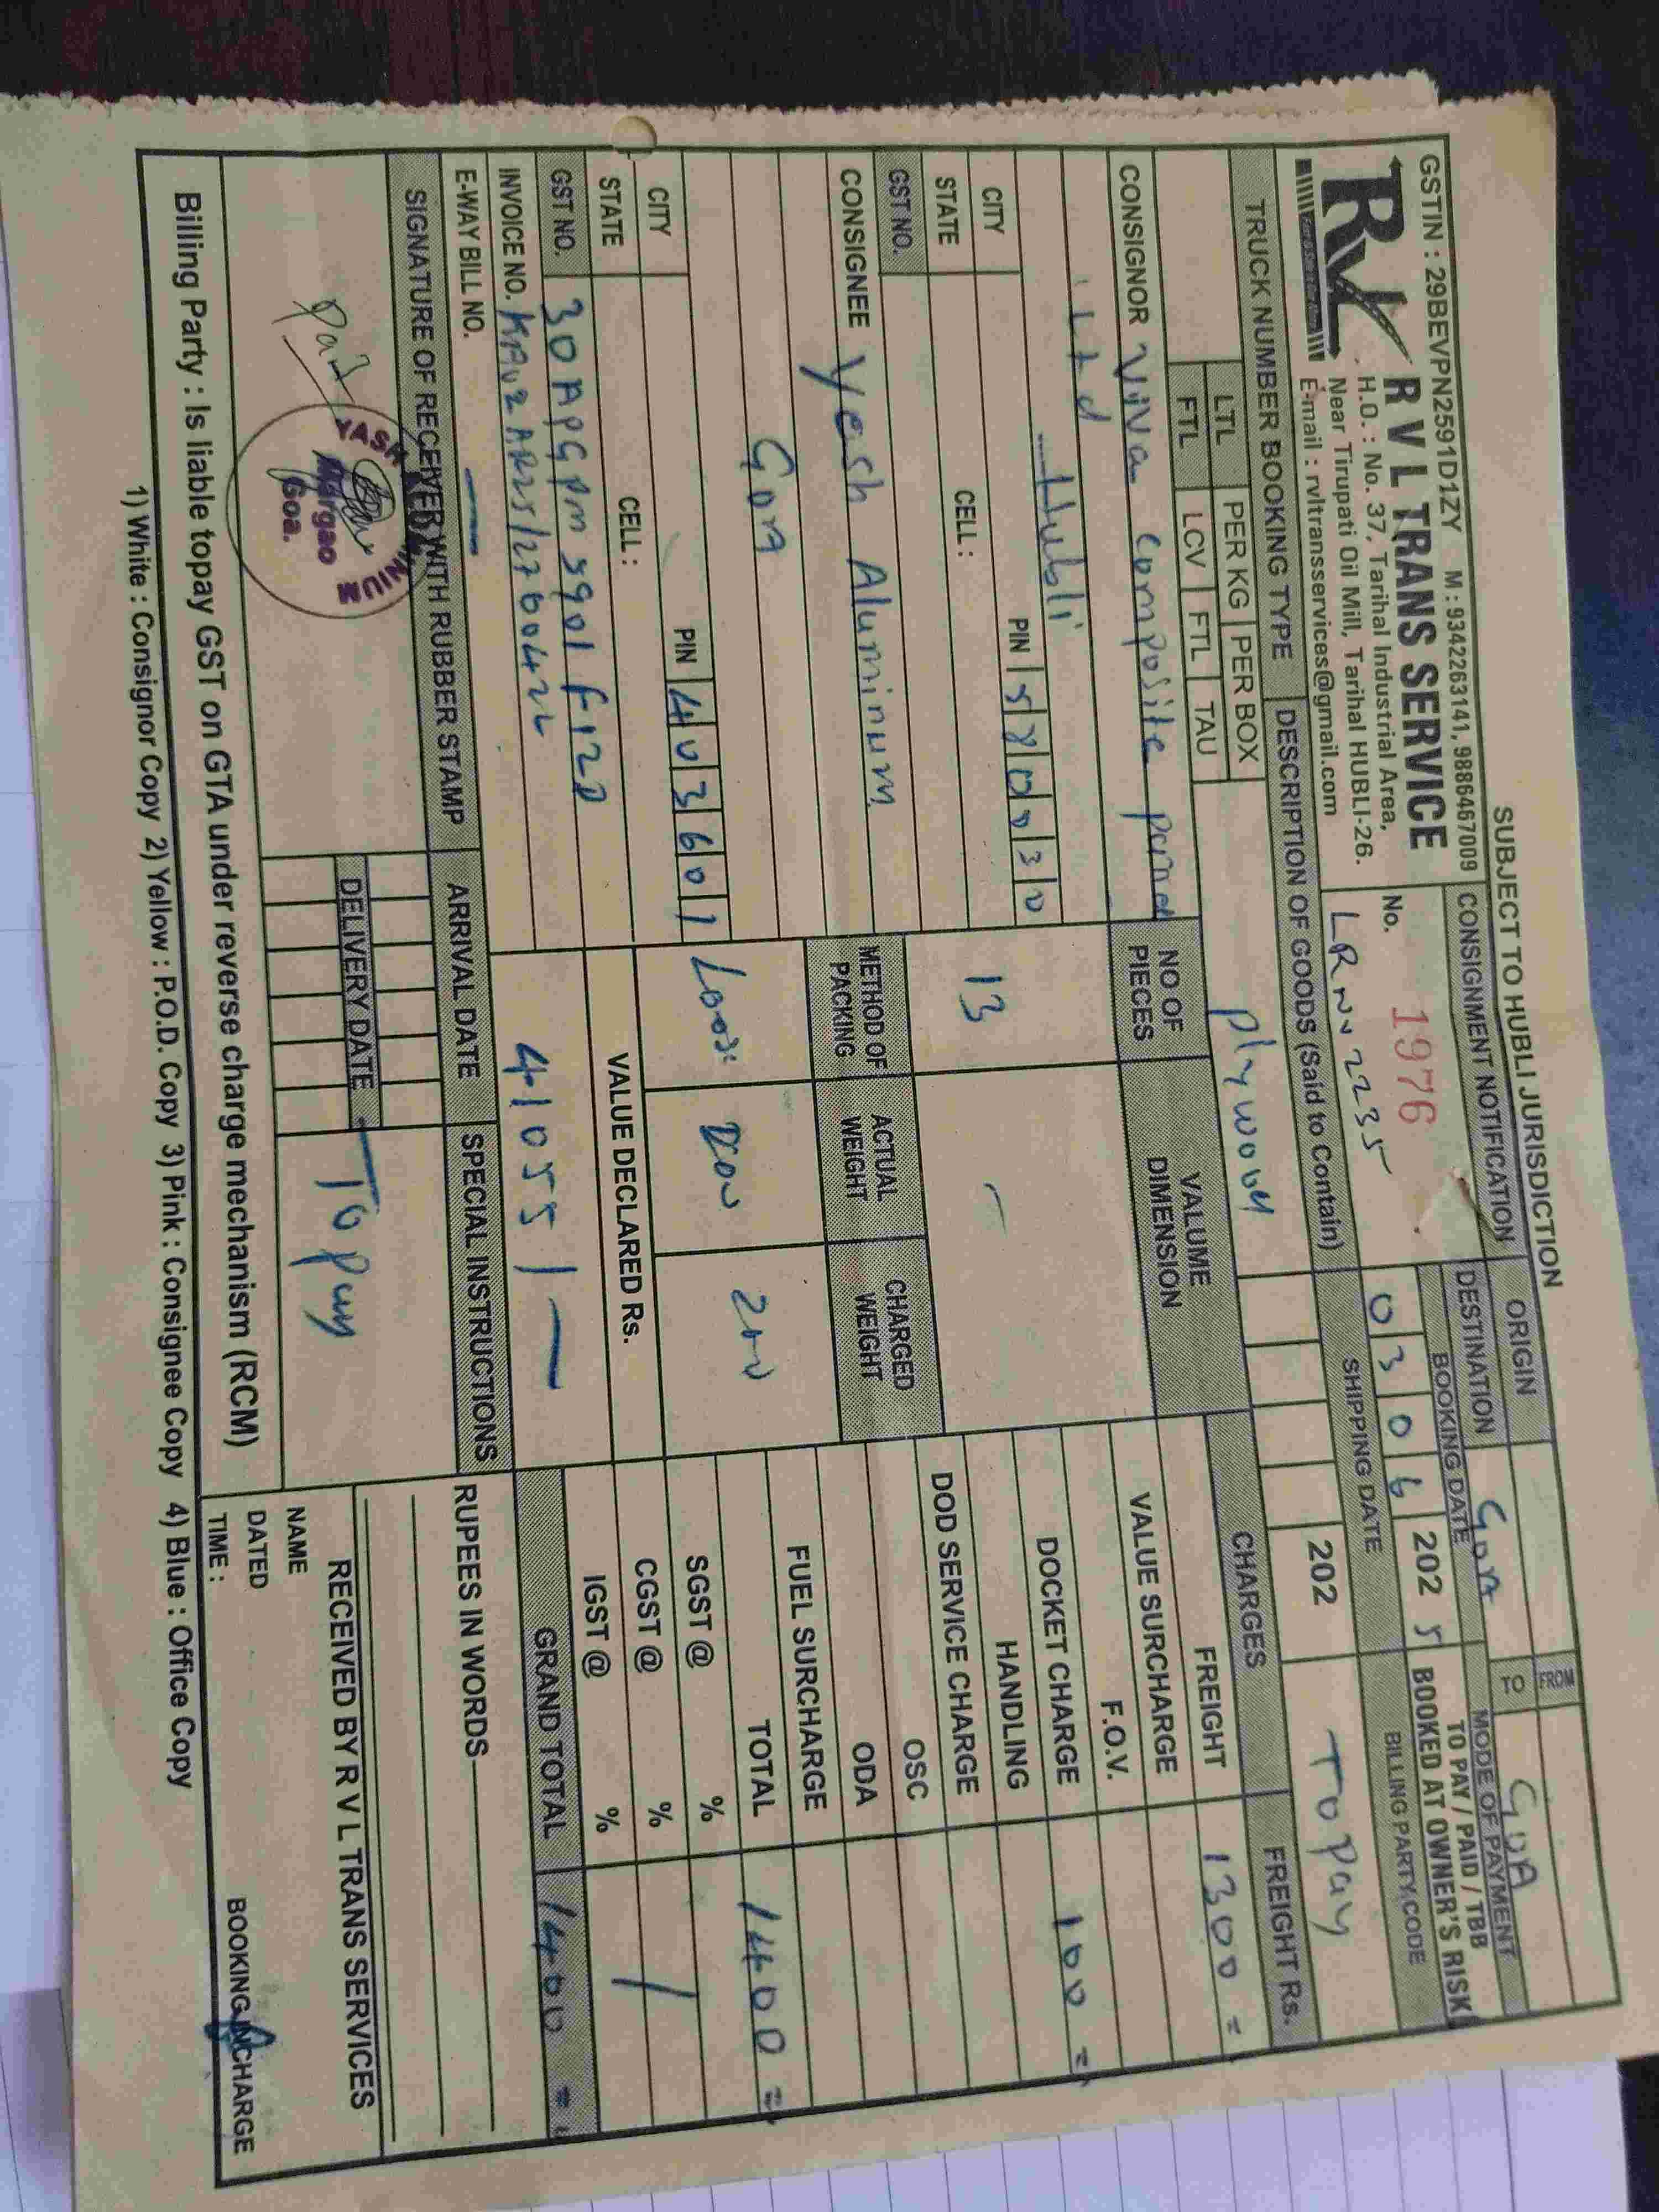 SUBJECT TO HUBLI JURISDICTION
GSTIN : 29BEVPN2591D1ZY M : 9342263141, 9886467009
RVL R V L TRANS SERVICE
H.O. : No. 37, Tarihal Industrial Area,
Near Tirupati Oil Mill, Tarihal HUBLI-26.
E-mail : rvltransservices@gmail.com
CONSIGNMENT NOTIFICATION
No. 1976
LR No 2235
ORIGIN FROM
DESTINATION Goa TO GOA
BOOKING DATE
0 3 0 6 202 5
SHIPPING DATE
202
MODE OF PAYMENT
TO PAY / PAID / TBB
BOOKED AT OWNER'S RISK
BILLING PARTY CODE
To pay
TRUCK NUMBER BOOKING TYPE
LTL PER KG PER BOX
FTL LCV FTL TAU
DESCRIPTION OF GOODS (Said to Contain)
plywood
CONSIGNOR Viva composite panel
Ltd
Hubli
PIN 5 8 0 0 3 0
CITY
STATE CELL :
GST NO.
CONSIGNEE Yash Aluminum
Goa
PIN 4 0 3 6 0 1
CITY
STATE CELL :
GST NO. 30APGPM5901F1ZD
INVOICE NO. KA02AR25/2700422
E-WAY BILL NO. —
SIGNATURE OF RECEIVER WITH RUBBER STAMP
Margao
Goa.
NO OF PIECES
VALUME DIMENSION
13 –
METHOD OF PACKING
ACTUAL WEIGHT
CHARGED WEIGHT
Loose 200
VALUE DECLARED Rs.
41055/—
ARRIVAL DATE
DELIVERY DATE
SPECIAL INSTRUCTIONS
To pay
CHARGES FREIGHT Rs.
FREIGHT 1300 =
VALUE SURCHARGE
F.O.V.
DOCKET CHARGE 100 =
HANDLING
DOD SERVICE CHARGE
OSC
ODA
FUEL SURCHARGE
TOTAL 1400 =
SGST @ %
CGST @ %
IGST @ %
GRAND TOTAL 1400 =
RUPEES IN WORDS
RECEIVED BY R V L TRANS SERVICES
NAME
DATED
TIME :
BOOKING INCHARGE
Billing Party : Is liable topay GST on GTA under reverse charge mechanism (RCM)
1) White : Consignor Copy 2) Yellow : P.O.D. Copy 3) Pink : Consignee Copy 4) Blue : Office Copy